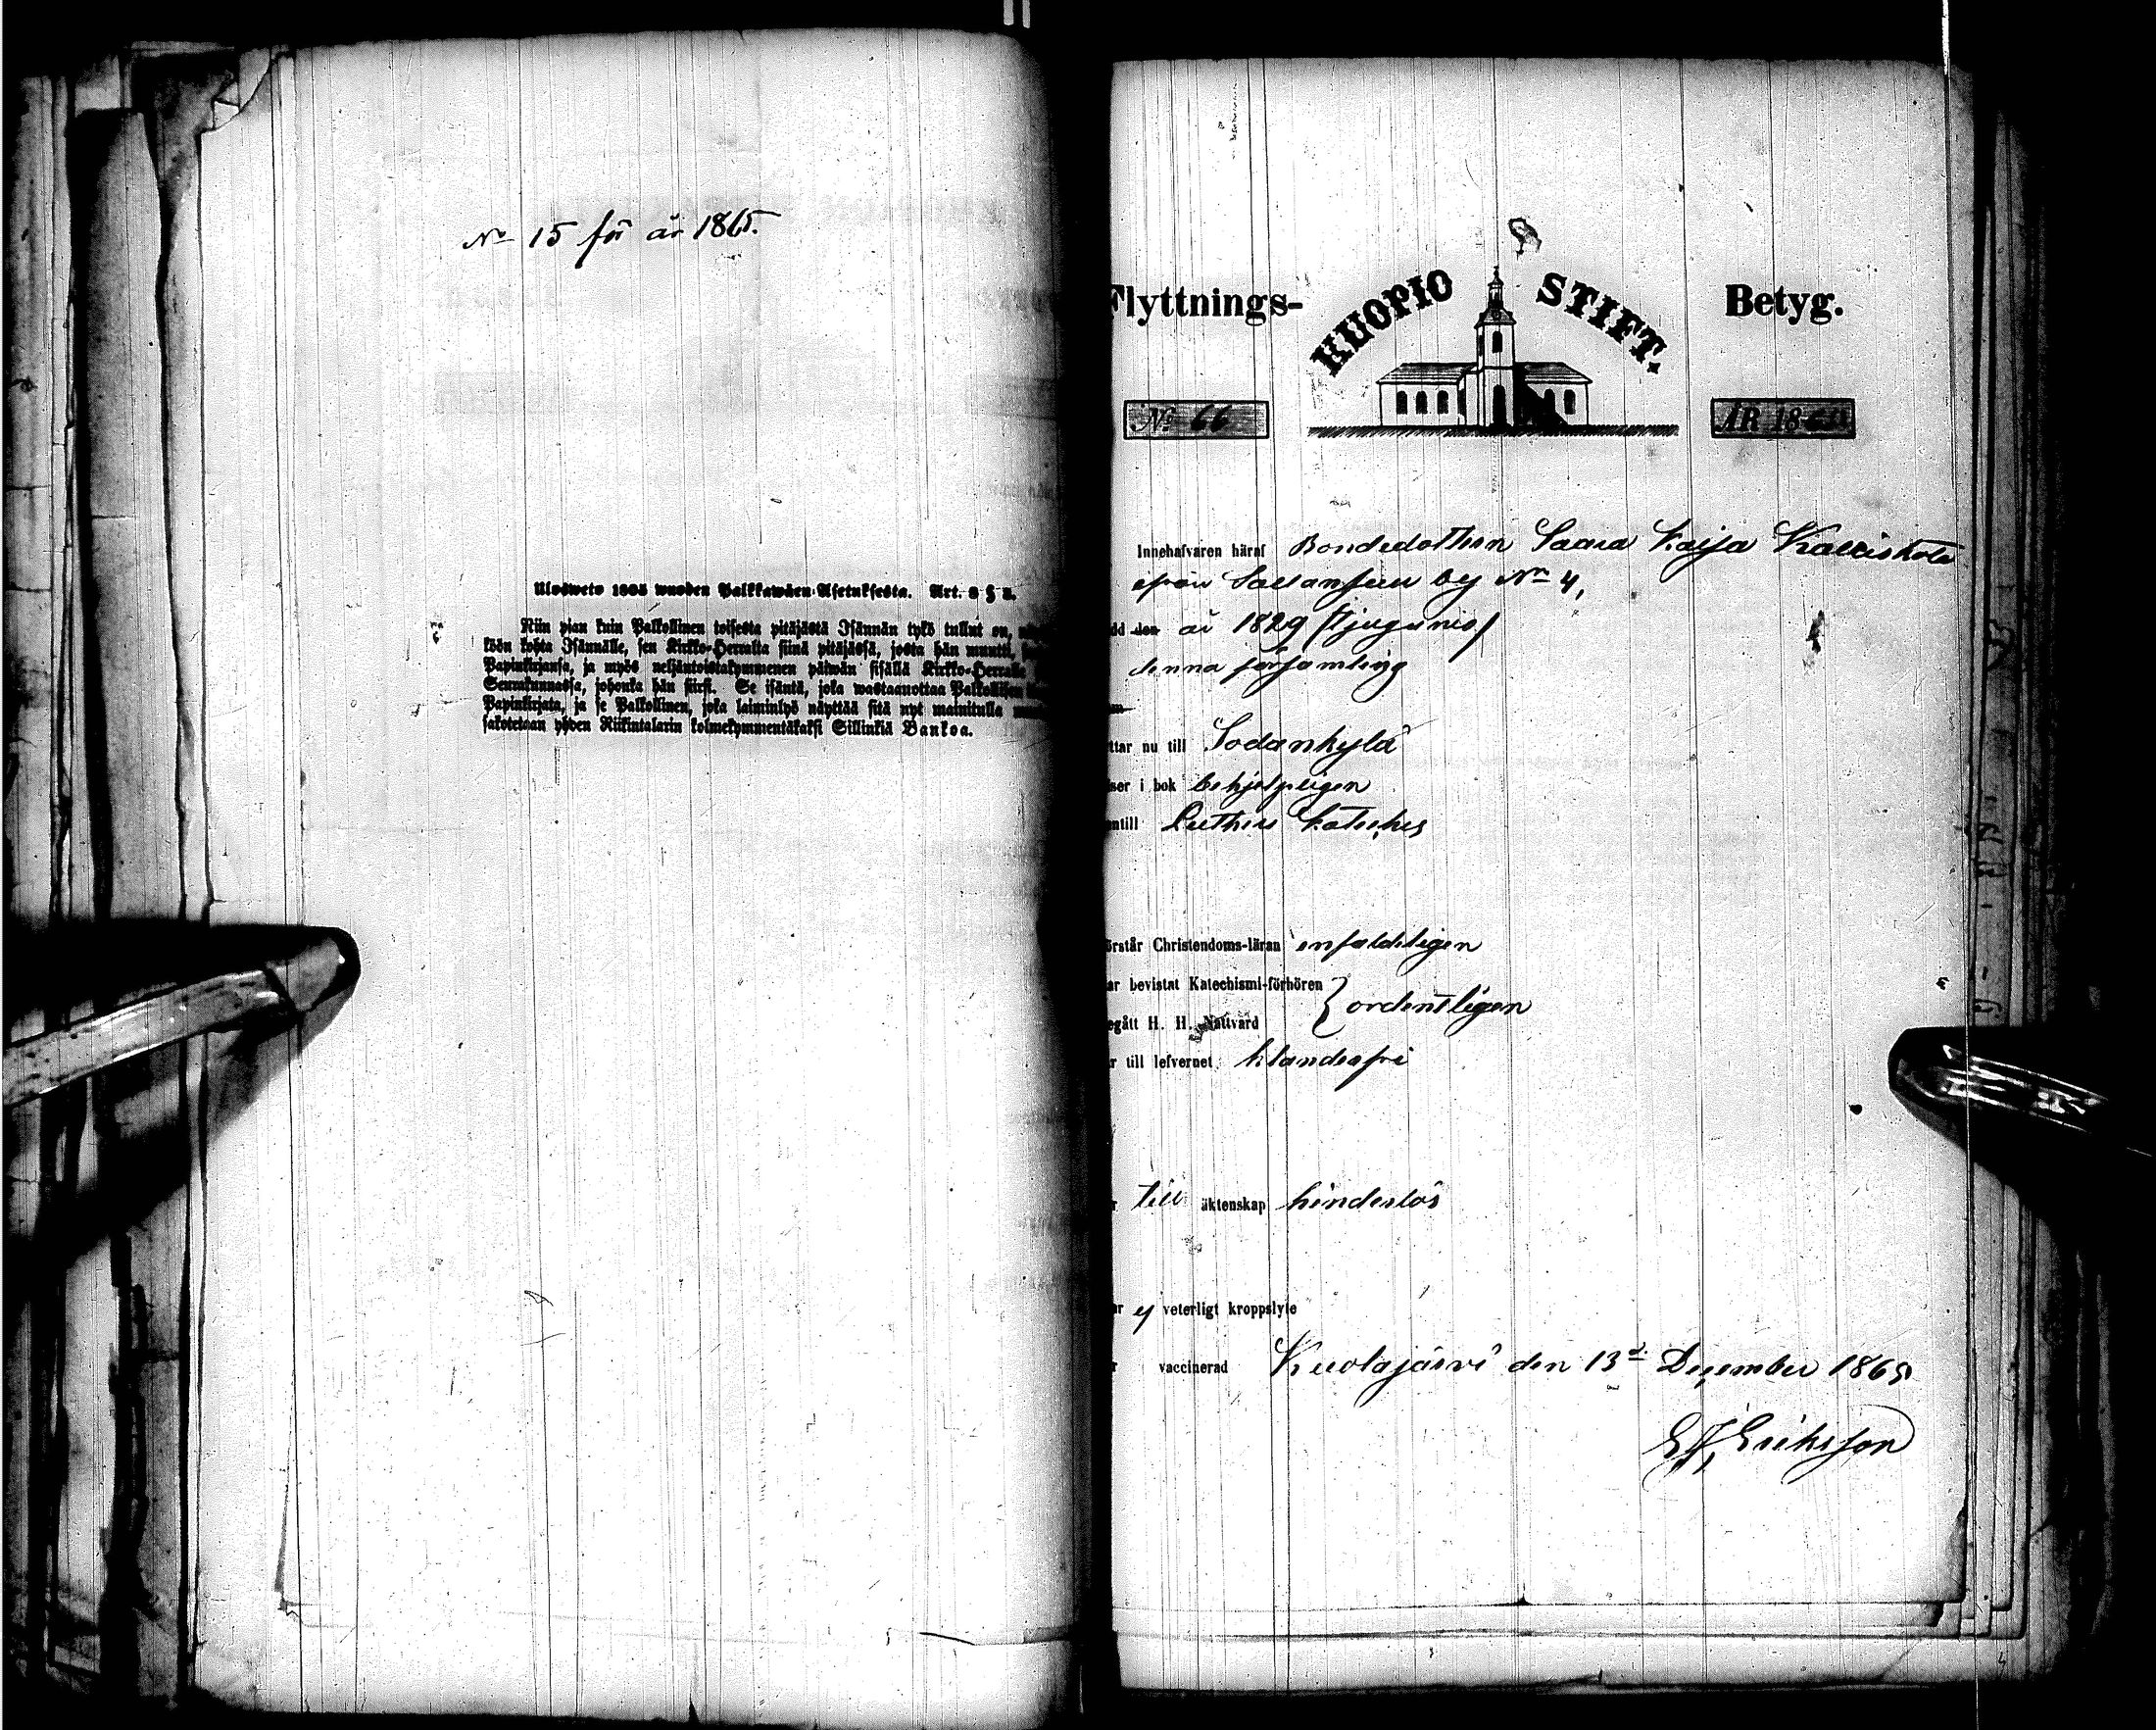 No 15 för år 1865.
Ulosweto 1805 wuoden Palkkawäen-Asetuksesta. Art. 8 § 3.
Niin pian kuin Palkollinen toisesta pitäjästä Isännän tykö tullut on,
köön kohta Isännälle, sen Kirkko-Herralta siinä pitäjässä, josta hän muutti,
Papinkirjansa, ja myös neljäntoistakymmenen päiwän sisällä Kirkko-Herralle
Seurakunnassa, johonka hän siirsi. Se isäntä, joka wastaanottaa Palkollisen
Papinkirjata, ja se Palkollinen, joka laiminlyö näyttää sitä nyt mainitulla
sakotetaan yhden Riikintalarin kolmekymmentäkaksi Sillinkiä Bankoa.
Flyttnings- KUOPIO STIFT. Betyg.
No 66 ÅR 18
Innehafvaren häraf Bondedottern Saara Kaisa
från by No 4,
den år 1829 /tjugunio/
denna församling
ttar nu till Sodankylä
ser i bok behjelpligen
antill Luthers kateches
örstår Christendoms-läran enfaldeligen
ar bevistat Katechismi-förhören } ordentligen
egått H. H. Nattvard
r till lefvernet klanderfri
r till äktenskap hinderlös
ar ej veterligt kroppslyte
r vaccinerad Kuolajärvi den 13de December 1865
Eriksson